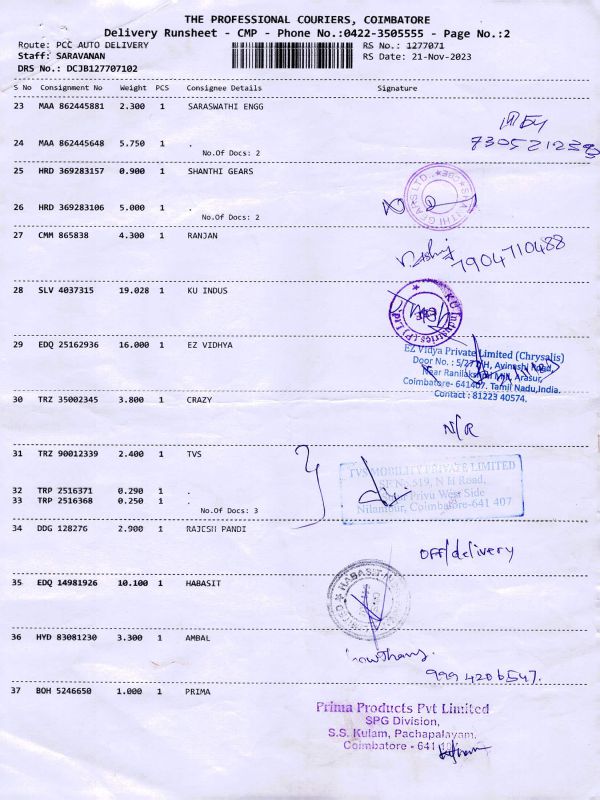 THE PROFESSIONAL COURIERS, COIMBATORE
Delivery Runsheet - CMP - Phone No.:0422-3505555 - Page No.:2
Route: PCC AUTO DELIVERY RS No.: 1277071
Staff: SARAVANAN RS Date: 21-Nov-2023
DRS No.: DCJB127707102
S No Consignment No Weight PCS Consignee Details Signature
23 MAA 862445881 2.300 1 SARASWATHI ENGG
24 MAA 862445648 5.750 1 .
No.Of Docs: 2
25 HRD 369283157 0.900 1 SHANTHI GEARS
SHANTHI GEARS LTD.,
26 HRD 369283106 5.000 1 .
No.Of Docs: 2
27 CMM 865838 4.300 1 RANJAN
7904710488
28 SLV 4037315 19.028 1 KU INDUS
KU Industries (P) Ltd
29 EDQ 25162936 16.000 1 EZ VIDHYA
EZ Vidya Private Limited (Chrysalis)
Door No. : 5/277H, Avinashi Road,
Near Ranilakshmi Mill, Arasur,
Coimbatore- 641407. Tamil Nadu,India.
Contact : 81223 40574.
30 TRZ 35002345 3.800 1 CRAZY
N/R
31 TRZ 90012339 2.400 1 TVS
TVS MOBILITY PRIVATE LIMITED
SF No 519, N H Road,
Privu West Side
Nilambur, Coimbatore-641 407
32 TRP 2516371 0.290 1 .
33 TRP 2516368 0.250 1 .
No.Of Docs: 3
34 DDG 128276 2.900 1 RAJESH PANDI
OFF/delivery
35 EDQ 14981926 10.100 1 HABASIT
36 HYD 83081230 3.300 1 AMBAL
9994206547.
37 BOH 5246650 1.000 1 PRIMA
Prima Products Pvt Limited
SPG Division,
S.S. Kulam, Pachapalayam,
Coimbatore - 641